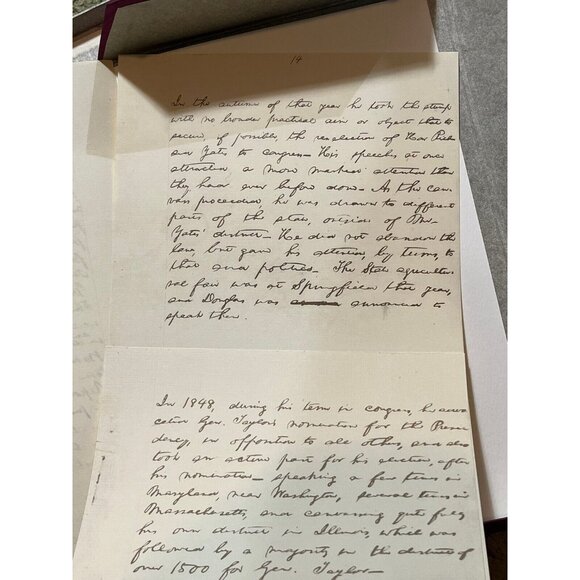 14
In the autumn of that year he took the stump
with no broader practical aim or object than to
secure, if possible, the re-election of Hon Rich-
ard Yates to congress. His speeches at once
attracted a more marked attention than
they had ever before done. As the can-
vass proceeded, he was drawn to different
parts of the state, outside of Mr.
Yates' district. He did not abandon the
law, but gave his attention, by turns, to
that and politics. The State agricultu-
ral fair was at Springfield that year,
and Douglas was announced to
speak there.
In 1848, during his term in congress, he advo-
cated Gen. Taylor's nomination for the Presi-
dency, in opposition to all others, and also
took an active part for his election, after
his nomination— speaking a few times in
Maryland, near Washington, several times in
Massachusetts, and canvassing quite fully
his own district in Illinois, which was
followed by a majority in the district of
over 1500 for Gen. Taylor—